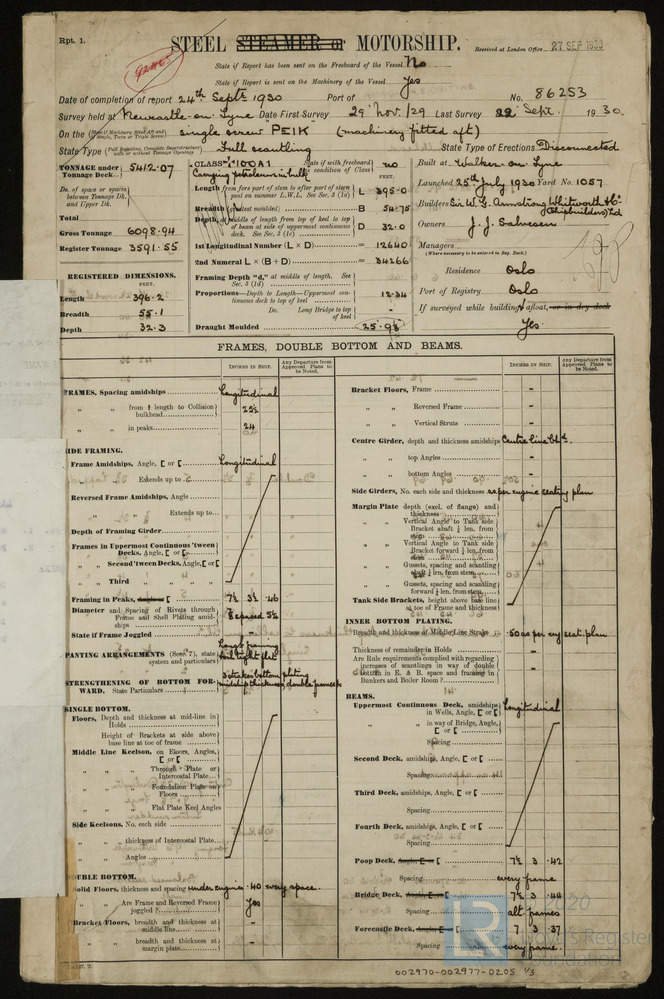 Rpt. 1.
STEEL STEAMER or MOTORSHIP.
Received at London Office 27 SEP 1930
92465
State if Report has been sent on the Freeboard of the Vessel No
State if Report is sent on the Machinery of the Vessel Yes
Date of completion of report 24th Septr 1930 Port of No. 86253
Survey held at Newcastle-on-Tyne Date First Survey 29 Nov./29 Last Survey 22 Sept. 1930.
On the single screw "PEIK" (machinery fitted aft)
State Type Full scantling State Type of Erections Disconnected
TONNAGE under Tonnage Deck 5412.07
Do. of space or spaces between Tonnage Dk. and Upper Dk.
Total
Gross Tonnage 6098.94
Register Tonnage 3591.55
REGISTERED DIMENSIONS.
FEET.
Length 396.2
Breadth 55.1
Depth 32.3
CLASS 100A1 State if with freeboard condition of Class no
Carrying petroleum in bulk
FEET.
Length from fore part of stem to after part of stern post on summer L.W.L. See Sec. 3 (1a) L 395.0
Breadth (greatest moulded) B 54.75
Depth, at middle of length from top of keel to top of beam at side of uppermost continuous deck. See Sec. 3 (1c) D 32.0
1st Longitudinal Number (L × D) = 12640
2nd Numeral L × (B + D) = 34266
Framing Depth "d," at middle of length. See Sec. 3 (1d)
Proportions—Depth to Length—Uppermost continuous deck to top of keel 12.34
Do. Long Bridge to top of keel -
Draught Moulded 25.9⅜
Built at Walker-on-Tyne
Launched 25th July 1930 Yard No. 1057
Builders Sir W. G. Armstrong Whitworth & Co (Shipbuilders) Ltd
Owners J. J. Salvesen
Managers
(Where necessary to be entered in Reg. Book.)
Residence Oslo
Port of Registry Oslo
If surveyed while building, afloat, or in dry dock
Yes.
FRAMES, DOUBLE BOTTOM AND BEAMS.
INCHES IN SHIP.
Any Departure from Approved Plans to be Noted.
INCHES IN SHIP.
Any Departure from Approved Plans to be Noted.
FRAMES, Spacing amidships Longitudinal
" " from ⅕ length to Collision bulkhead 25½
" " in peaks 24
SIDE FRAMING.
Frame Amidships, Angle, [ or [ Longitudinal
" " Extends up to
Reversed Frame Amidships, Angle
" " Extends up to
Depth of Framing Girder
Frames in Uppermost Continuous 'tween Decks, Angle, [ or [
" Second 'tween Decks, Angle, [ or [
" Third " " " "
Framing in Peaks, Angle or [ 7½ 3½ .46
Diameter and Spacing of Rivets through Frame and Shell Plating amidships ⅞ spaced 5½
State if Frame Joggled -
PANTING ARRANGEMENTS (Sec. 7), state system and particulars
STRENGTHENING OF BOTTOM FORWARD. State Particulars
SINGLE BOTTOM.
Floors, Depth and thickness at mid-line in Holds
Height of Brackets at side above base line at toe of frame
Middle Line Keelson, on Floors, Angles, [ or [
" " Through Plate or Intercostal Plate
" " Foundation Plate on Floors
" " Flat Plate Keel Angles
Side Keelsons, No. each side
" " thickness of Intercostal Plate
" " Angles
DOUBLE BOTTOM.
Solid Floors, thickness and spacing under engine .40 every space.
" Are Frame and Reversed Frame joggled? Yes
Bracket Floors, breadth and thickness at middle line -
" " breadth and thickness at margin plate -
Bracket Floors, Frame -
" " Reversed Frame -
" " Vertical Struts -
Centre Girder, depth and thickness amidships Centre line bhd.
" " top Angles -
" " bottom Angles -
Side Girders, No. each side and thickness as per engine seating plan
Margin Plate depth (excl. of flange) and thickness
" " Vertical Angle to Tank side Bracket abaft ¼ len. from stem
" " Vertical Angle to Tank side Bracket forward ¼ len. from stem
" " Gussets, spacing and scantling abaft ¼ len. from stem
" " Gussets, spacing and scantling forward ¼ len. from stem
Tank Side Brackets, height above base line at toe of Frame and thickness
INNER BOTTOM PLATING.
Breadth and thickness of Middle Line Strake .50 as per eng. seat. plan
Thickness of remainder in Holds -
Are Rule requirements complied with regarding increases of scantlings in way of double bottom in E. & B. space and framing in Bunkers and Boiler Room? -
BEAMS.
Uppermost Continuous Deck, amidships in Wells, Angle, [ or [ Longitudinal
" " in way of Bridge, Angle, [ or [
Spacing
Second Deck, amidships, Angle, [ or [
Spacing
Third Deck, amidships, Angle, [ or [
Spacing
Fourth Deck, amidships, Angle, [ or [
Spacing
Poop Deck, Angle, [ or [ 7½ 3 .42
Spacing every frame
Bridge Deck, Angle, [ or [ 7½ 3 .44
Spacing alt. frames
Forecastle Deck, Angle, [ or [ 7 3 .37
Spacing every frame.
002970-002977-0205 1/3
LR
© 2020
Lloyd's Register
Foundation